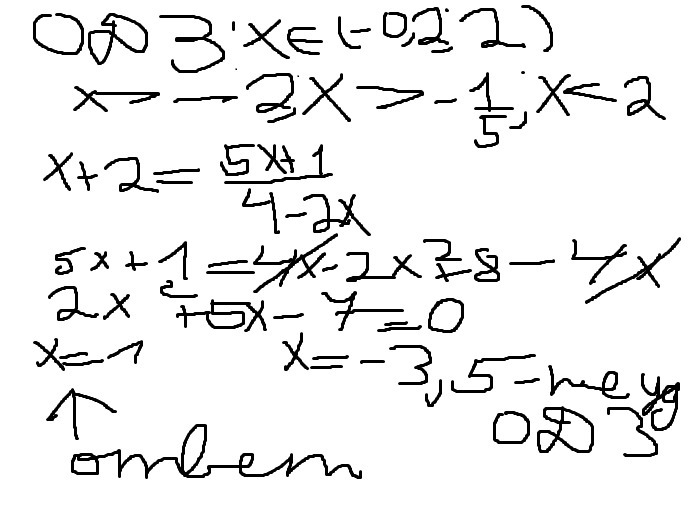 ОДЗ: x∈(-0,2; 2)
x>-2, x>-1/5, x<2
x+2=(5x+1)/(4-2x)
5x+1=4x-2x²+8-4x
2x²+5x-7=0
x=1 x=-3,5-не уд
ОДЗ
↑
ответ